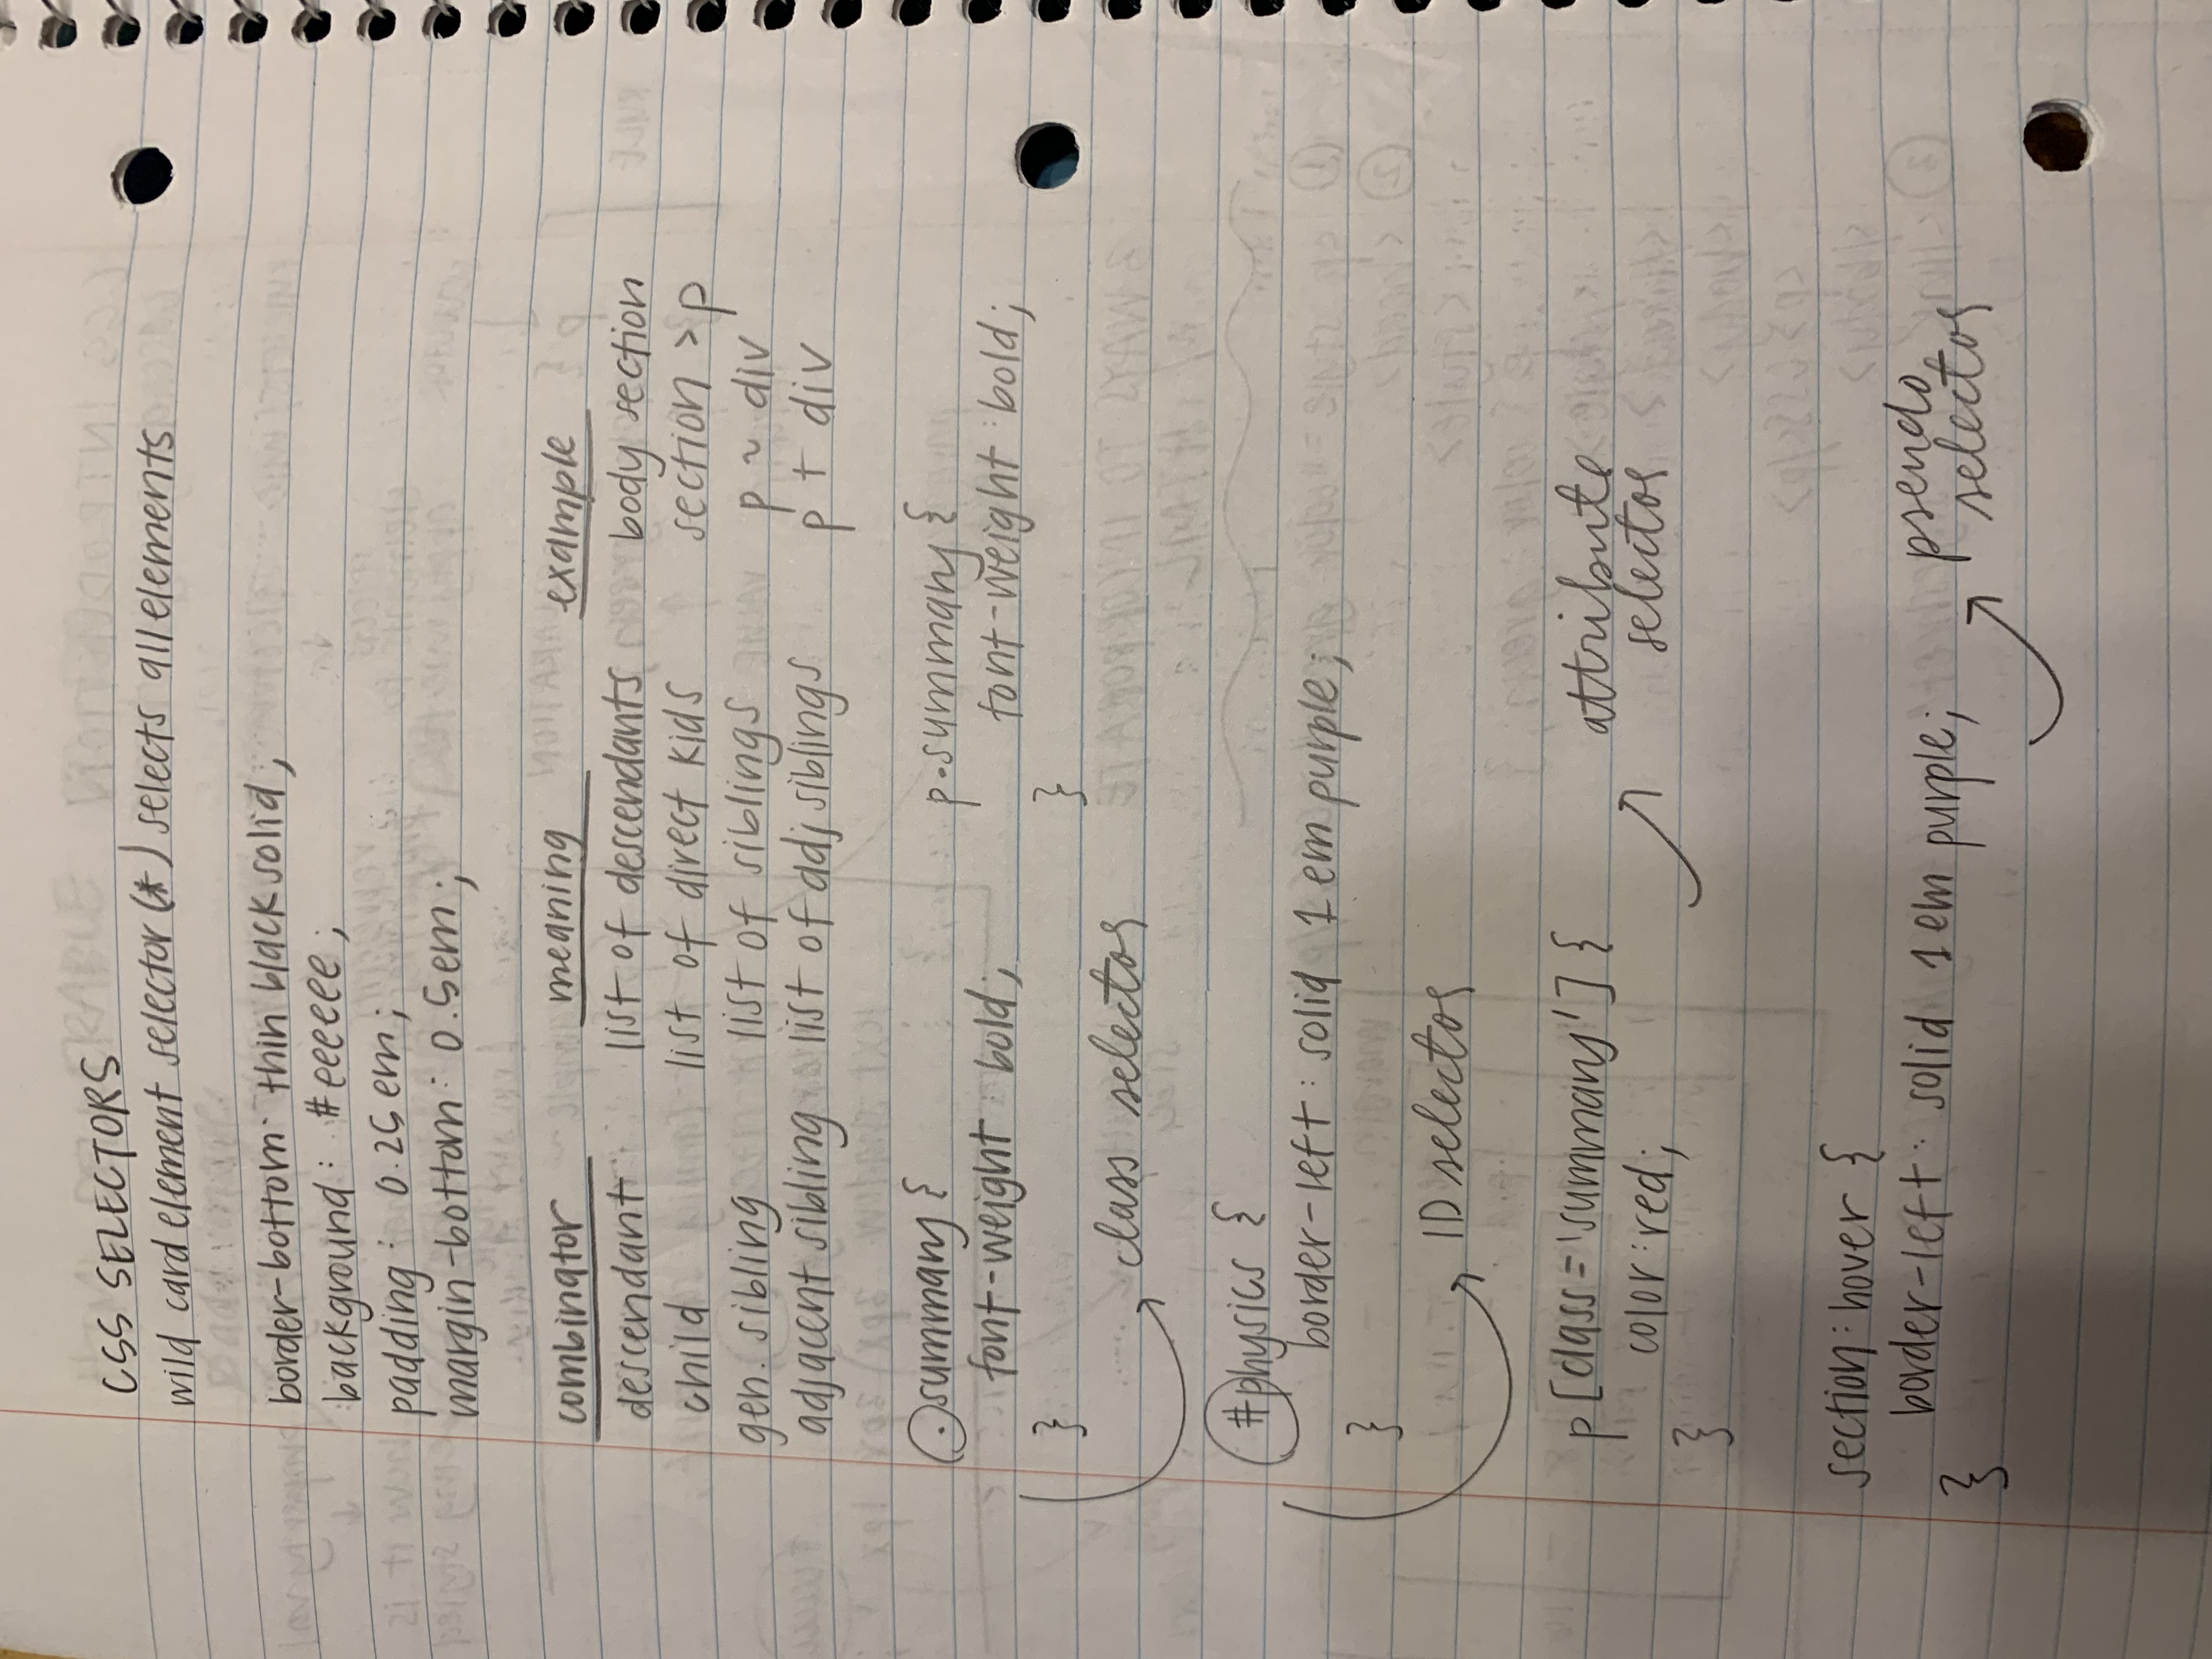 CSS SELECTORS
wild card element selector (*) selects all elements
border-bottom: thin black solid;
background: #eeeeee;
padding: 0.25em;
margin-bottom: 0.5em;
combinator meaning example
descendant list of descendants body section
child list of direct kids section > p
gen. sibling list of siblings p ~ div
adjacent sibling list of adj siblings p + div
.summary { p.summary {
font-weight: bold; font-weight: bold;
} }
class selector
#physics {
border-left: solid 1em purple;
}
ID selector
p[class='summary'] { attribute
color: red; selector
}
section:hover {
border-left: solid 1em purple; pseudo
} selector